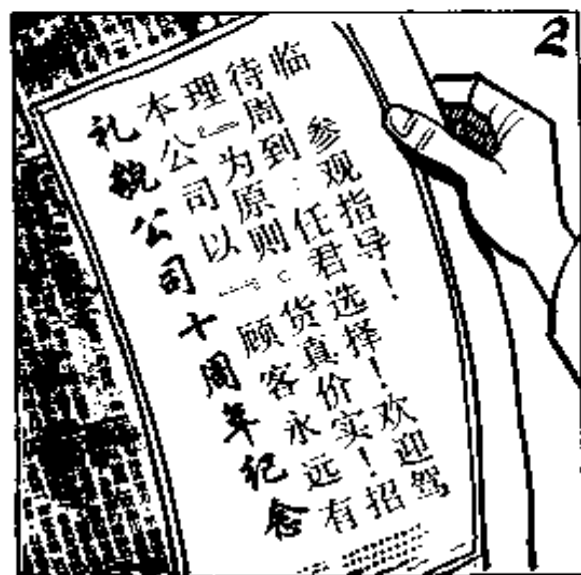 2
礼貌公司十周年纪念
本公司以「顾客永远有
理」为原则。货真价实！招
待周到：任君选择！欢迎驾
临参观指导！